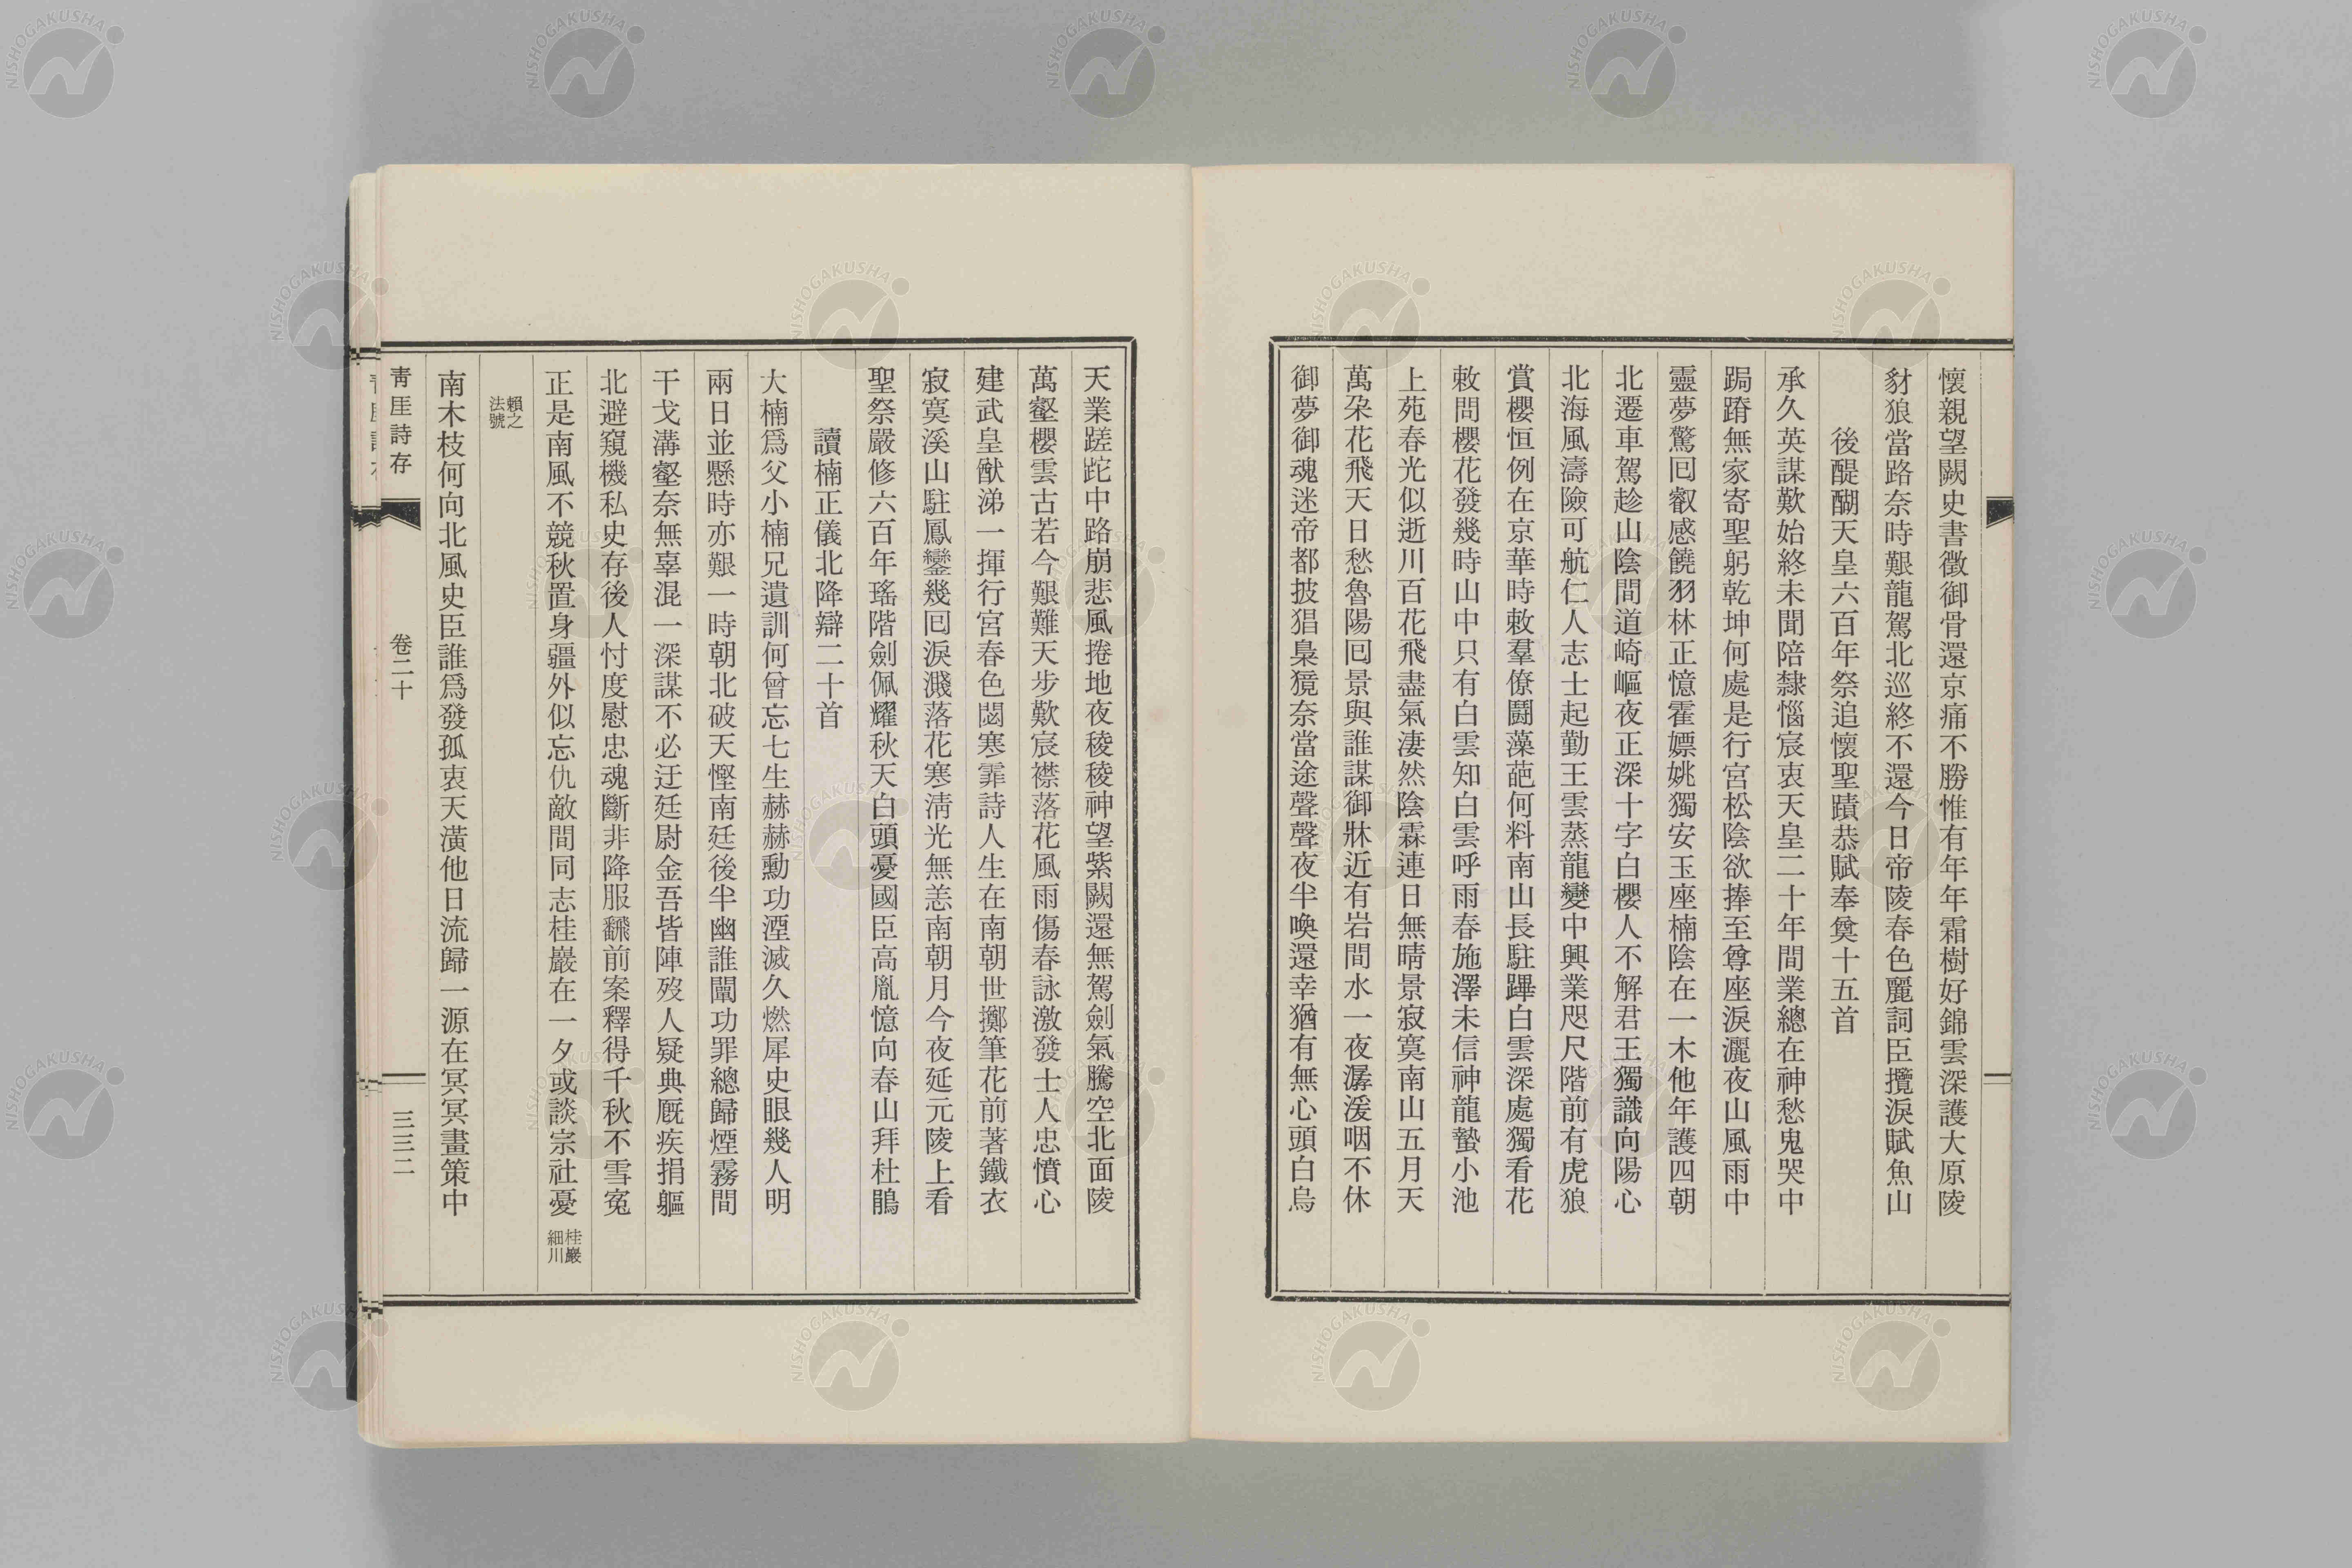 懷親望闕史書徵御骨還京痛不勝惟有年年霜樹好錦雲深護大原陵
豺狼當路奈時艱龍駕北巡終不還今日帝陵春色麗詞臣攬淚賦魚山
後醍醐天皇六百年祭追懷聖蹟恭賦奉奠十五首
承久英謀歎始終未聞陪隸惱宸衷天皇二十年間業總在神愁鬼哭中
跼蹐無家寄聖躬乾坤何處是行宮松陰欲捧至尊座淚灑夜山風雨中
靈夢驚囘叡感饒羽林正憶霍嫖姚獨安玉座楠陰在一木他年護四朝
北遷車駕趁山陰間道崎嶇夜正深十字白櫻人不解君王獨識向陽心
北海風濤險可航仁人志士起勤王雲蒸龍變中興業咫尺階前有虎狼
賞櫻恒例在京華時敕羣僚鬪藻葩何料南山長駐蹕白雲深處獨看花
敕問櫻花發幾時山中只有白雲知白雲呼雨春施澤未信神龍蟄小池
上苑春光似逝川百花飛盡氣凄然陰霖連日無晴景寂寞南山五月天
萬朶花飛天日愁魯陽囘景與誰謀御牀近有岩間水一夜潺湲咽不休
御夢御魂迷帝都披猖梟獍奈當途聲聲夜半喚還幸猶有無心頭白烏
天業蹉跎中路崩悲風捲地夜稜稜神望紫闕還無駕劍氣騰空北面陵
萬壑櫻雲古若今艱難天步歎宸襟落花風雨傷春詠激發士人忠憤心
建武皇猷涕一揮行宮春色閟寒霏詩人生在南朝世擲筆花前著鐵衣
寂寞溪山駐鳳鑾幾囘淚濺落花寒清光無恙南朝月今夜延元陵上看
聖祭嚴修六百年瑤階劍佩耀秋天白頭憂國臣高胤憶向春山拜杜鵑
讀楠正儀北降辯二十首
大楠爲父小楠兄遺訓何曾忘七生赫赫勳功湮滅久燃犀史眼幾人明
兩日並懸時亦艱一時朝北破天慳南廷後半幽誰闡功罪總歸煙霧間
干戈溝壑奈無辜混一深謀不必迂廷尉金吾皆陣歿人疑典厩疾捐軀
北避窺機私史存後人忖度慰忠魂斷非降服飜前案釋得千秋不雪寃
正是南風不競秋置身疆外似忘仇敵間同志桂巖在一夕或談宗社憂 桂巖細川
賴之法號
南木枝何向北風史臣誰爲發孤衷天潢他日流歸一源在冥冥畫策中
靑厓詩存 卷二十 三三二